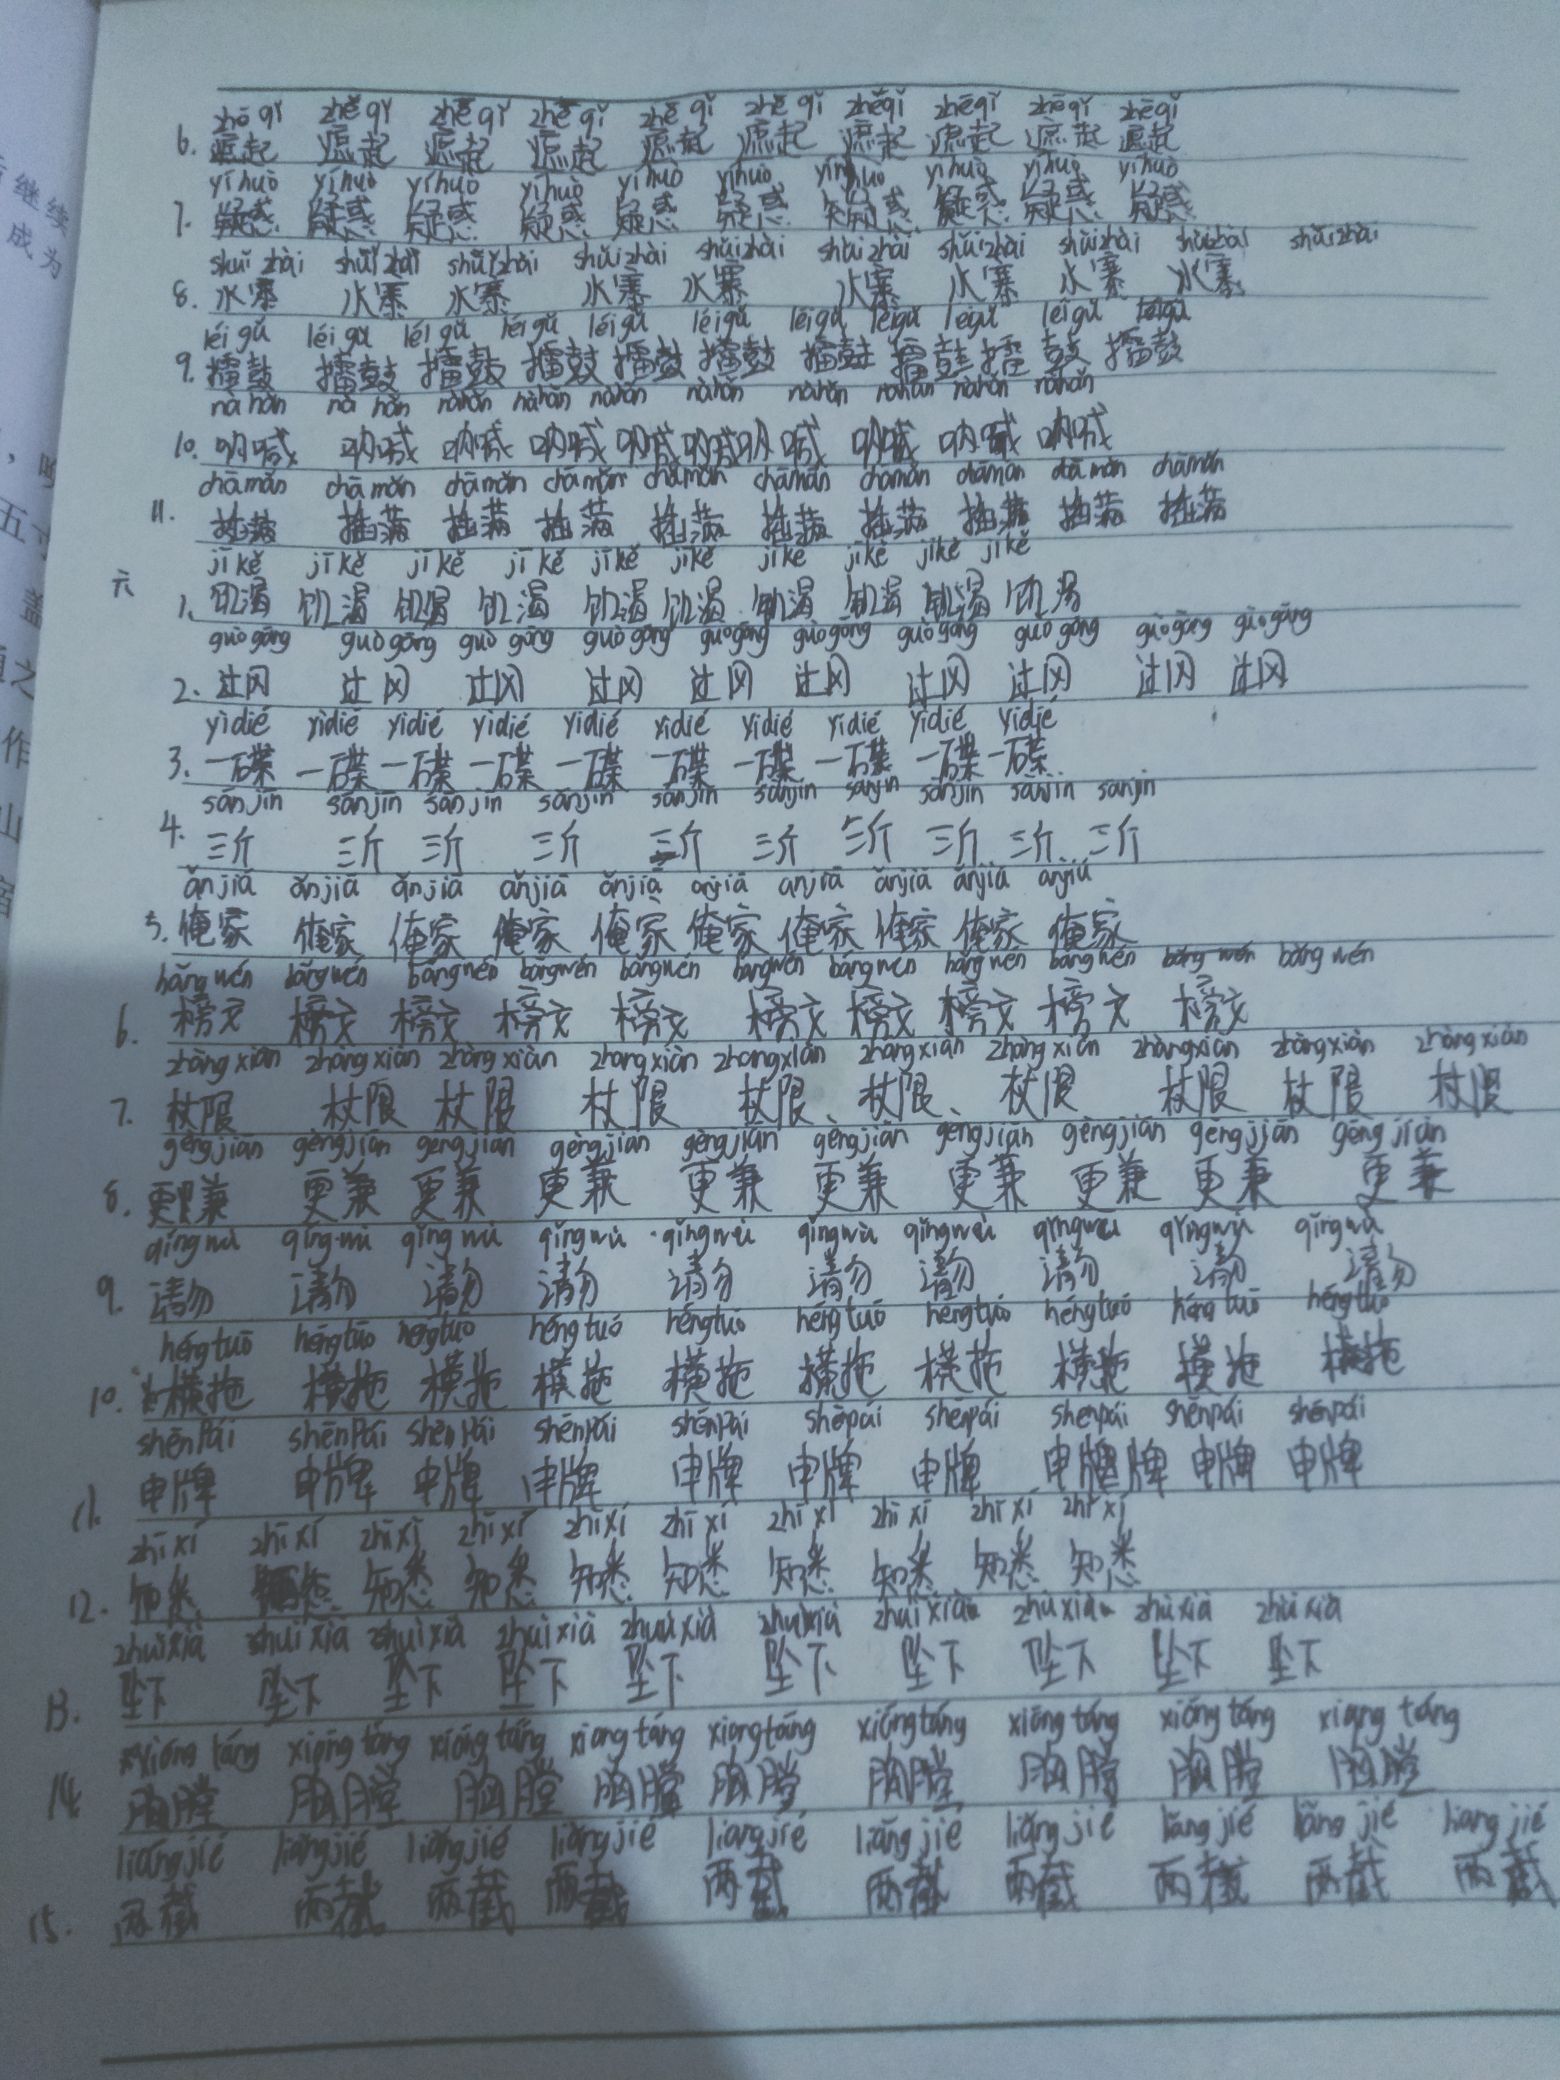 zhē qǐ zhē qǐ zhē qǐ zhē qǐ zhē qǐ zhē qǐ zhēqǐ zhēqǐ zhēqǐ zhēqǐ
6. 遮起 遮起 遮起 遮起 遮起 遮起 遮起 遮起 遮起 遮起
yíhuò yíhuò yíhuò yíhuò yíhuò yíhuò yíhuò yíhuò yíhuò
7. 疑惑 疑惑 疑惑 疑惑 疑惑 疑惑 疑惑 疑惑 疑惑 疑惑
shuǐ zhài shuǐ zhài shuǐzhài shuǐzhài shuǐzhài shuǐzhài shuǐzhài shuǐzhài shuǐzhài shuǐzhài
8. 水寨 水寨 水寨 水寨 水寨 水寨 水寨 水寨 水寨
léi gǔ léi gǔ léi gǔ léi gǔ léi gǔ léigǔ léigǔ léigǔ légǔ léigǔ
9. 擂鼓 擂鼓 擂鼓 擂鼓 擂鼓 擂鼓 擂鼓 擂鼓 擂鼓 擂鼓
nà hǎn nà hǎn nàhǎn nàhǎn nàhǎn nàhǎn nàhǎn nàhǎn nàhǎn nàhǎn
10. 呐喊 呐喊 呐喊 呐喊 呐喊 呐喊 呐喊 呐喊 呐喊 呐喊
chāmǎn chā mǎn chāmǎn chāmǎn chāmǎn chāmǎn chāmǎn chāmǎn chā mǎn chāmǎn
11. 插满 插满 插满 插满 插满 插满 插满 插满 插满 插满
jī kě jī kě jī kě jī kě jīkě jīkě jīkě jīkě jīkě jīkě
六
1. 饥渴 饥渴 饥渴 饥渴 饥渴 饥渴 饥渴 饥渴 饥渴 饥渴
guògāng guògāng guò gāng guò gāng guògāng guògāng guò gāng guò gāng guògāng guògāng
2. 过冈 过冈 过冈 过冈 过冈 过冈 过冈 过冈 过冈 过冈
yìdié yìdié yìdié yìdié yìdié yìdié yìdié yìdié yìdié yìdié
3. 一碟 一碟 一碟 一碟 一碟 一碟 一碟 一碟 一碟 一碟
sānjīn sānjīn sānjīn sānjīn sānjīn sānjīn sānjīn sānjīn sānjīn sānjīn
4. 三斤 三斤 三斤 三斤 三斤 三斤 三斤 三斤 三斤 三斤
ǎnjiā ǎnjiā ǎnjiā ǎnjiā ǎnjiā ǎnjiā ǎnjiā ǎnjiā ǎnjiā ǎnjiā
5. 俺家 俺家 俺家 俺家 俺家 俺家 俺家 俺家 俺家 俺家
bǎngwén bǎngwén bǎngwén bǎngwén bǎngwén bǎngwén bǎngwén bǎngwén bǎngwén bǎng wén
6. 榜文 榜文 榜文 榜文 榜文 榜文 榜文 榜文 榜文 榜文
zhàngxiàn zhàngxiàn zhàngxiàn zhàngxiàn zhàngxiàn zhàngxiàn zhàngxiàn zhàngxiàn zhàngxiàn zhàngxiàn
7. 杖限 杖限 杖限 杖限 杖限、杖限、杖限 杖限 杖限 杖限
gèngjiān gèngjiān gèngjiān gèngjiān gèngjiān gèngjiān gèngjiān gèngjiān gèngjiān gèng jiān
8. 更兼 更兼 更兼 更兼 更兼 更兼 更兼 更兼 更兼 更兼
qǐngwù qǐngwù qǐngwù qǐngwù qǐngwù qǐngwù qǐngwù qǐngwù qǐngwù qǐngwù
9. 请勿 请勿 请勿 请勿 请勿 请勿 请勿 请勿 请勿 请勿
héngtuō héngtuō héngtuō héngtuō héngtuō héngtuō héngtuō héngtuō héngtuō héngtuō
10. 横拖 横拖 横拖 横拖 横拖 横拖 横拖 横拖 横拖 横拖
shēnPái shēnPái shēnPái shēnPái shēnPái shēpái shenpái shenpái shēnpái shēnpái
11. 申牌 申牌 申牌 申牌 申牌 申牌 申牌 申牌 申牌 申牌
zhī xī zhī xī zhī xī zhī xī zhī xī zhī xī zhī xī zhī xī zhī xī zhī xī
12. 知悉 知悉 知悉 知悉 知悉 知悉 知悉 知悉 知悉 知悉
zhuìxià zhuìxià zhuìxià zhuìxià zhuìxià zhuìxià zhuìxià zhùxià zhùxià zhùxià
13. 坠下 坠下 坠下 坠下 坠下 坠下 坠下 坠下 坠下 坠下
xiōng táng xiōng táng xiōng táng xiōng táng xiōngtáng xiōngtáng xiōng táng xiōng táng xiōng táng
14. 胸膛 胸膛 胸膛 胸膛 胸膛 胸膛 胸膛 胸膛 胸膛
liǎngjié liǎngjié liǎngjié liǎngjié liǎngjié liǎngjié liǎngjié liǎngjié liǎngjié liǎngjié
15. 两截 两截 两截 两截 两截 两截 两截 两截 两截 两截